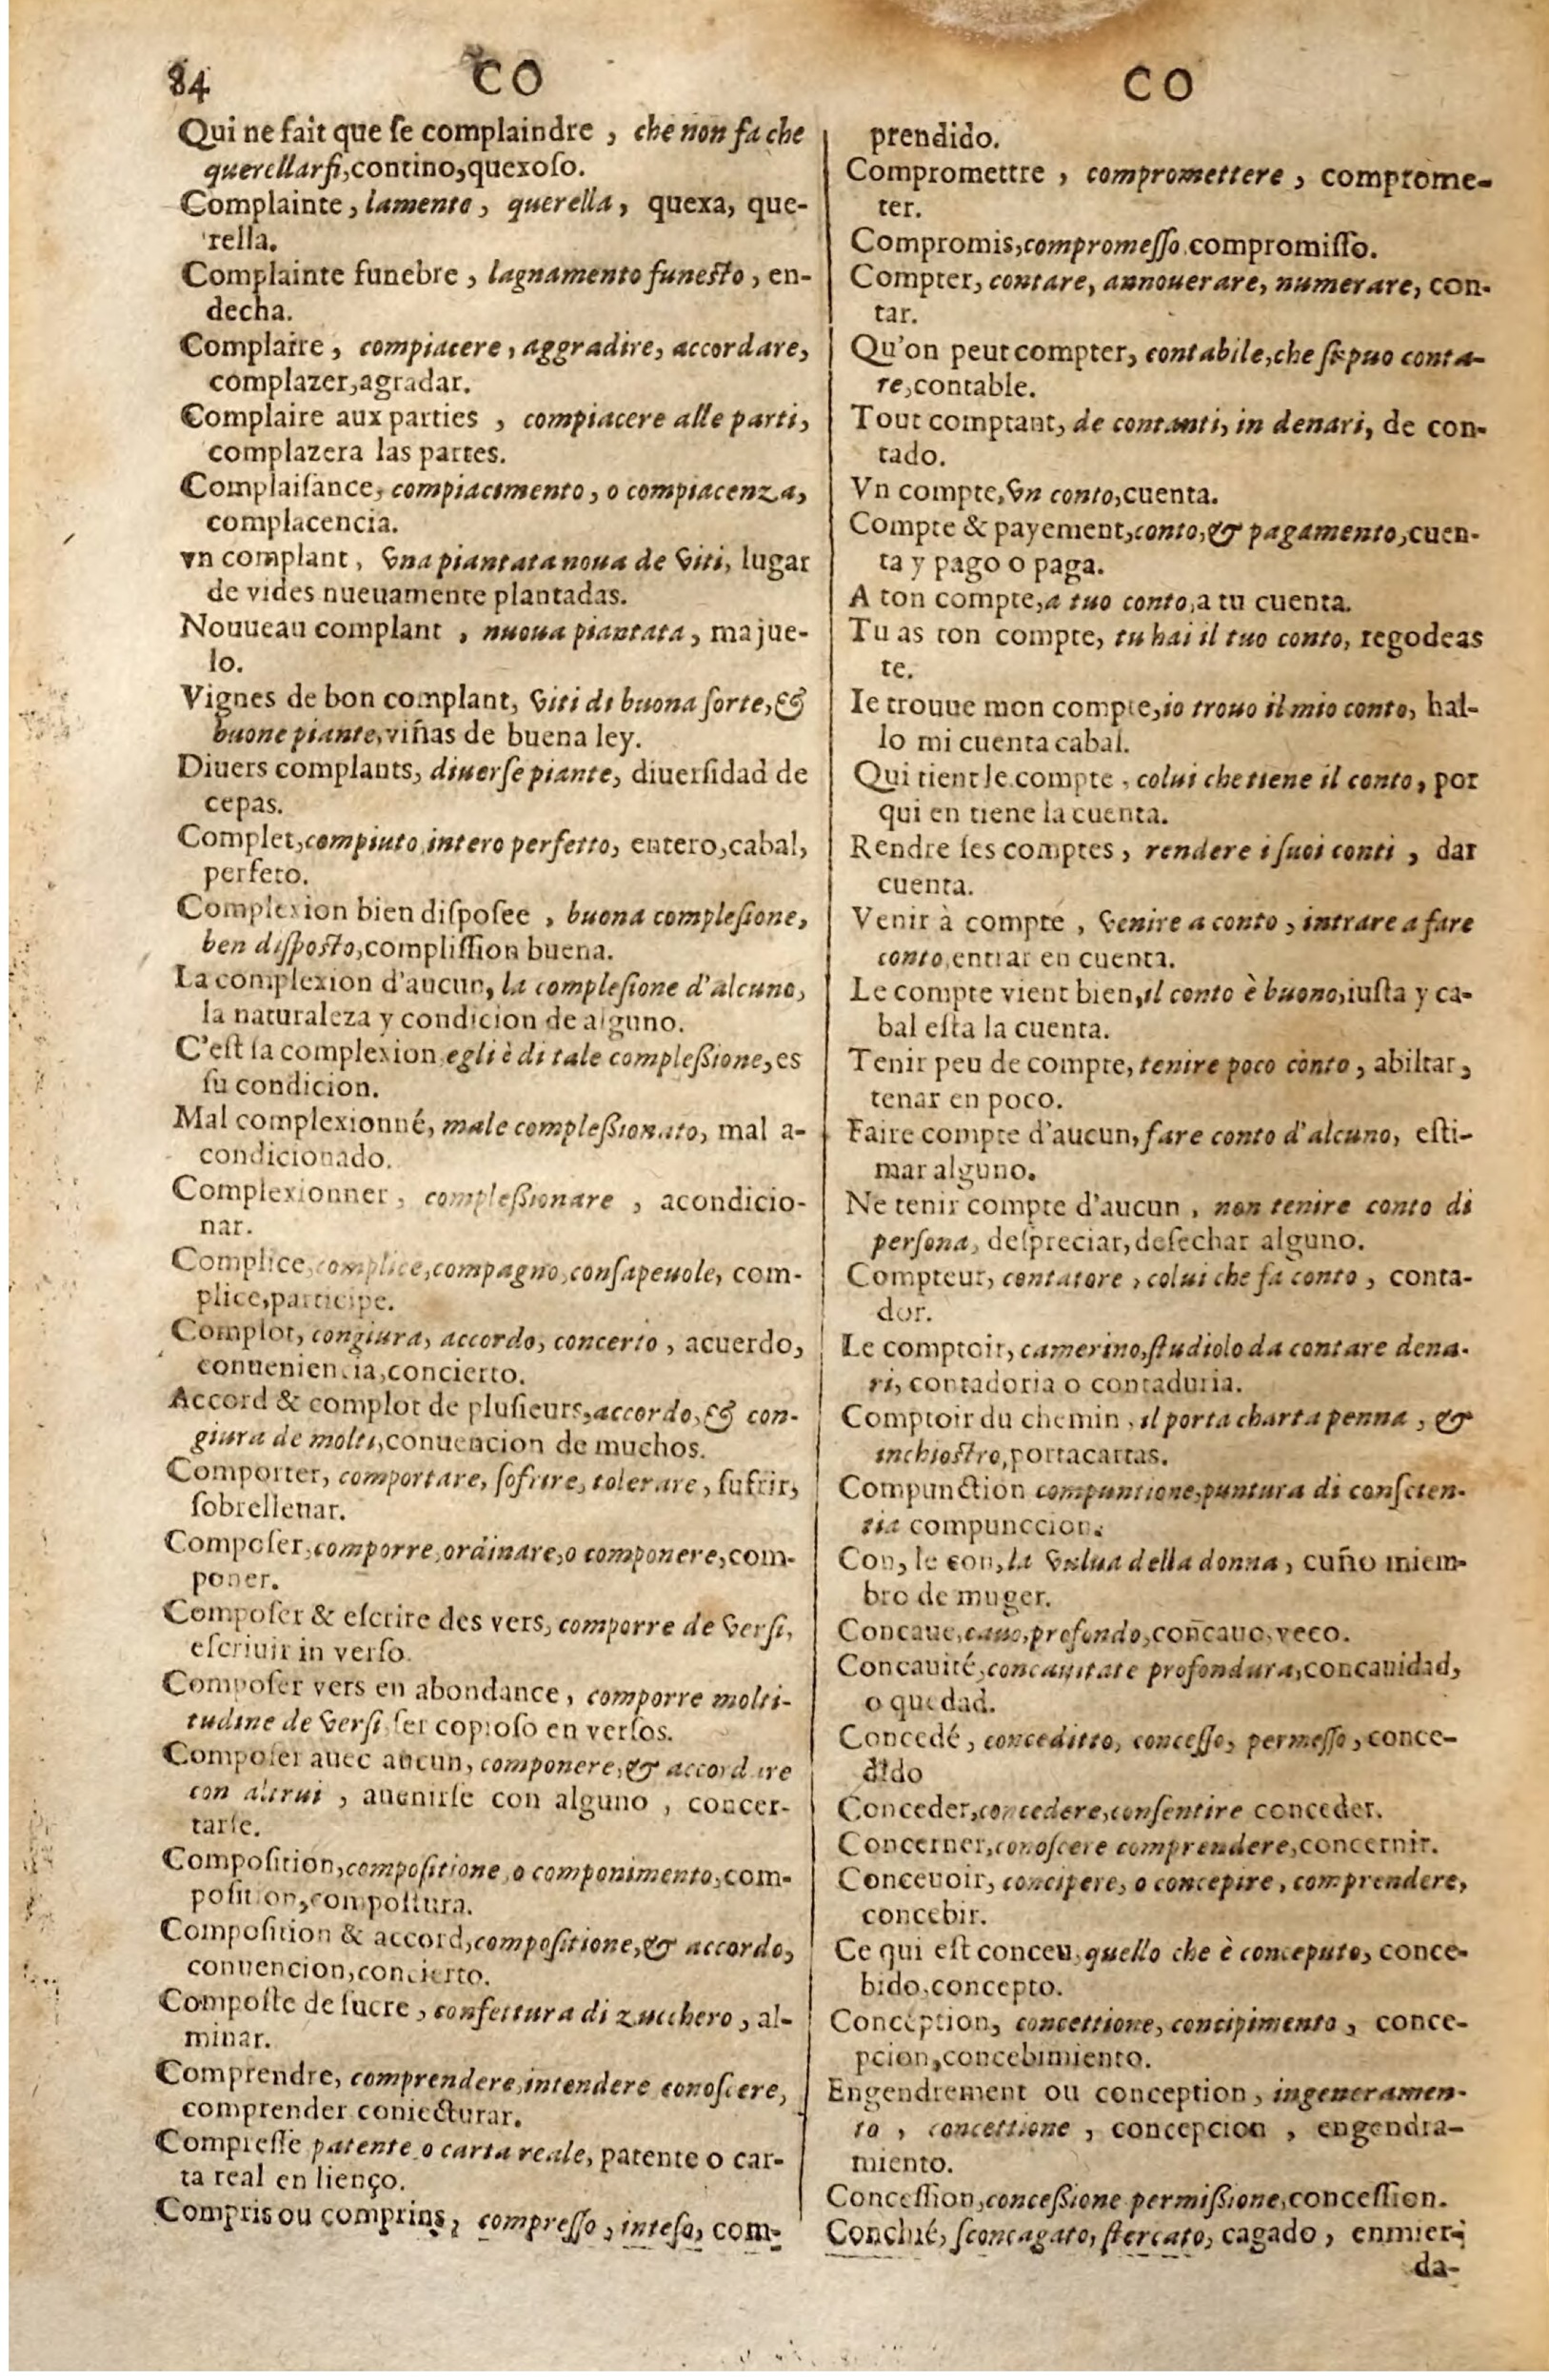 84 CO CO
Qui ne fait que ſe complaindre , che non fa che
querellarſi,contino,quexoſo.
Complainte, lamento, querella, quexa, que-
rella.
Complainte funebre , lagnamento funeſto, en-
decha.
Complaire , compiacere, aggradire, accordare,
complazer,agradar.
Complaire aux parties , compiacere alle parti,
complazera las partes.
Complaiſance, compiacimento, o compiacenza,
complacencia.
vn complant, vna piantata noua de viti, lugar
de vides nueuamente plantadas.
Nouueau complant , nuoua piantata, majue-
lo.
Vignes de bon complant, viti di buona ſorte,&
buone piante,viñas de buena ley.
Diuers complants, diuerſe piante, diuerſidad de
cepas.
Complet,compiuto,intero perfetto, entero,cabal,
perfeto.
Complexion bien diſpoſee , buona compleſione,
ben diſpoſto,compliſſion buena.
La complexion d'aucun, la compleſione d'alcuno,
la naturaleza y condicion de alguno.
C'eſt ſa complexion egli è di tale compleßione,es
ſu condicion.
Mal complexionné, male compleßionato, mal a-
condicionado.
Complexionner, compleßionare , acondicio-
nar.
Complice,complice,compagno,conſapeuole, com-
plice,participe.
Complot, congiura, accordo, concerto , acuerdo,
conueniencia,concierto.
Accord & complot de pluſieurs,accordo,& con-
giura de molti,conuencion de muchos.
Comporter, comportare, ſofrire, tolerare, ſufrir,
ſobrelleuar.
Compoſer,comporre,ordinare,o componere,com-
poner.
Compoſer & eſcrire des vers, comporre de verſi,
eſcriuir in verſo.
Compoſer vers en abondance, comporre molti-
tudine de verſi,ſer copioſo en verſos.
Compoſer auec aucun, componere,& accordare
con altrui , auenirſe con alguno , concer-
tarſe.
Compoſition,compoſitione,o componimento,com-
poſition,compoſtura.
Compoſition & accord,compoſitione,& accordo,
conuencion,concierto.
Compoſte de ſucre, confettura di zucchero, al-
minar.
Comprendre, comprendere,intendere conoſcere,
comprender coniecturar.
Compreſſe patente o carta reale, patente o car-
ta real en lienço.
Compris ou comprins, compreſſo, inteſo, com-
prendido.
Compromettre , compromettere , comprome-
ter.
Compromis,compromeſſo.compromiſſo.
Compter, contare, annouerare, numerare, con-
tar.
Qu'on peut compter, contabile,che ſi puo conta-
re,contable.
Tout comptant, de contanti, in denari, de con-
tado.
Vn compte,vn conto,cuenta.
Compte & payement,conto,& pagamento,cuen-
ta y pago o paga.
A ton compte,a tuo conto,a tu cuenta.
Tu as ton compte, tu hai il tuo conto, regodeas
te.
Ie trouue mon compte,io trouo il mio conto, hal-
lo mi cuenta cabal.
Qui tient le compte , colui che tiene il conto, por
qui en tiene la cuenta.
Rendre ſes comptes , rendere i ſuoi conti , dar
cuenta.
Venir à compte , venire a conto , intrare a fare
conto,entrar en cuenta.
Le compte vient bien,il conto è buono,iuſta y ca-
bal eſta la cuenta.
Tenir peu de compte,tenire poco conto, abiltar,
tenar en poco.
Faire compte d'aucun, fare conto d'alcuno, eſti-
mar alguno.
Ne tenir compte d'aucun , non tenire conto di
perſona, deſpreciar,deſechar alguno.
Compteur, contatore , colui che fa conto , conta-
dor.
Le comptoir, camerino,ſtudiolo da contare dena-
ri, contadoria o contaduria.
Comptoir du chemin , il porta charta penna , &
inchioſtro,portacartas.
Compunction compuntione,puntura di conſcien-
tia compunccion.
Con, le con,la vulua della donna , cuño miem-
bro de muger.
Concaue,cauo,profondo,coñcauo,veco.
Concauité,concauitate profondura,concauidad,
o quedad.
Concedé , conceditto, conceſſo, permeſſo, conce-
dido
Conceder,concedere,conſentire conceder.
Concerner,conoſcere comprendere,concernir.
Conceuoir, concipere, o concepire, comprendere,
concebir.
Ce qui eſt conceu,quello che è conceputo, conce-
bido,concepto.
Conception, concettione, concipimento , conce-
pcion,concebimiento.
Engendrement ou conception , ingeneramen-
to , concettione , concepcion , engendra-
miento.
Conceſſion,conceßione permißione,conceſſion.
Conchié, ſconcagato, ſtercato, cagado, enmier-
da-